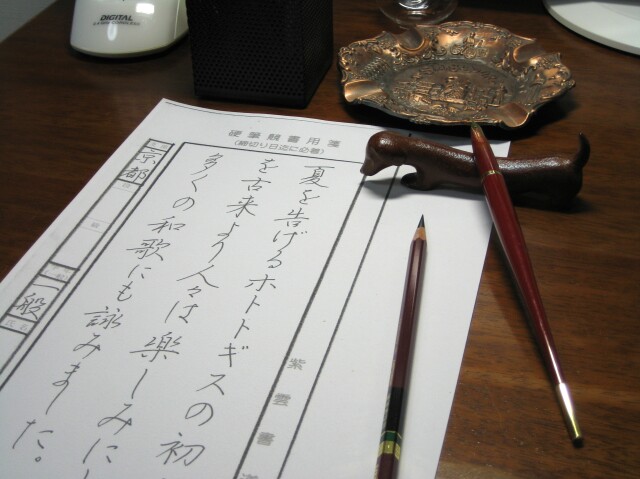 DIGITAL
硬筆競書用箋
(締切り日迄に必着)
紫雲書道
夏を告げるホトトギスの初
を古来より人々は楽しみに
多くの和歌にも詠みました。
京都
一般